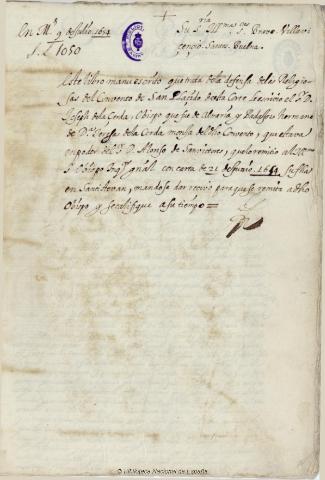 En M.d 9 de Julio 1654
Su S.ria Ill.mas
Bravo. Villavi
1050
cencio. Santos. Buelna.
Este libro manuescrito que trata de la defensa de las Religio-
sas del Convento de San Placido desta Corte le escrivio el s.r D.
Joseph de la Cerda, Obispo que fue de Almeria, y Badajoz hermano
de D.ª Teresa de la Cerda monja del dho Convento, que estava
en poder del s.r D. Alonso de Sanvitores, que lo remitio al
s.r Obispo Inq.r gnãl con carta de 21 de Junio, 1654, su fha
en Santistevan, mandose dar recivo para que se remita a dho
Obispo y se califique a su tiempo
Biblioteca Nacional de España